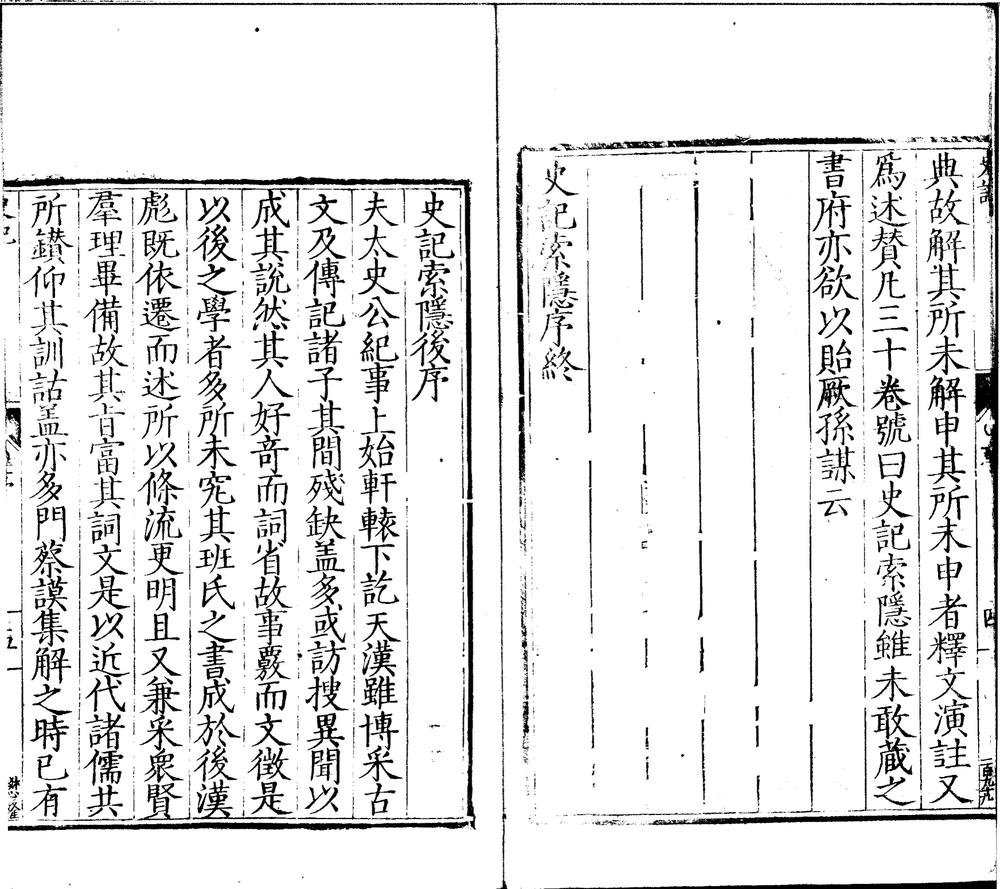 典故解其所未解申其所未申者釋文演註又
爲述賛凡三十卷號曰史記索隱雖未敢藏之
書府亦欲以貽厥孫謀云
史記索隱序終
史記索隱後序
夫太史公紀事上始軒轅下訖天漢雖博采古
文及傳記諸子其間殘缺盖多或訪搜異聞以
成其說然其人好竒而詞省故事覈而文微是
以後之學者多所未究其班氏之書成於後漢
彪既依遷而述所以條流更明且又兼采衆賢
羣理畢備故其旨富其詞文是以近代諸儒共
所鑚仰其訓詁盖亦多門蔡謨集解之時已有